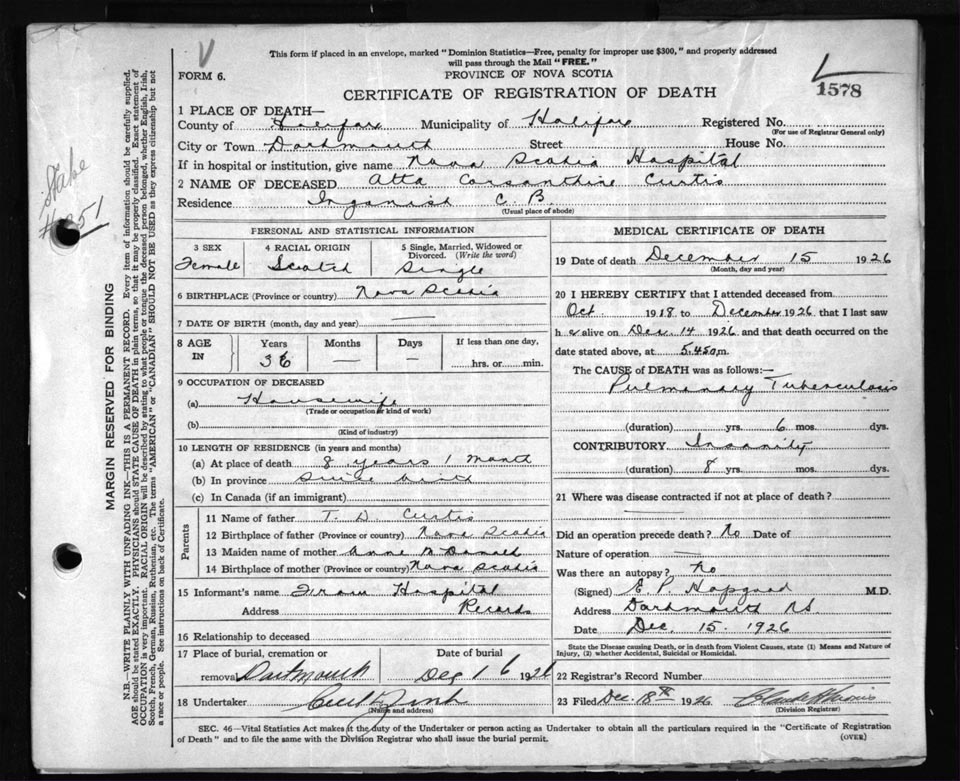 V
This form if placed in an envelope, marked "Dominion Statistics—Free, penalty for improper use $300," and properly addressed
will pass through the Mail "FREE."
FORM 6.
PROVINCE OF NOVA SCOTIA
CERTIFICATE OF REGISTRATION OF DEATH
1578
Stake
MARGIN RESERVED FOR BINDING
N.B.—WRITE PLAINLY WITH UNFADING INK—THIS IS A PERMANENT RECORD. Every item of information should be carefully supplied.
AGE should be stated EXACTLY. PHYSICIANS should STATE CAUSE OF DEATH in plain terms, so that it may be properly classified. Exact statement of
OCCUPATION is very important. RACIAL ORIGIN will be described by stating to what people or tongue the deceased person belonged, whether English, Irish,
Scotch, French, German, Russian, Ruthenian, etc. The terms "AMERICAN" or "CANADIAN" SHOULD NOT BE USED as they express citizenship but not
a race or people. See instructions on back of Certificate.
1 PLACE OF DEATH—
County of Halifax Municipality of Halifax Registered No.
(For use of Registrar General only)
City or Town Dartmouth Street House No.
If in hospital or institution, give name Nova Scotia Hospital
2 NAME OF DECEASED Atta Corsanthine Curtis
Residence Inganish C. B.
(Usual place of abode)
PERSONAL AND STATISTICAL INFORMATION
3 SEX 4 RACIAL ORIGIN 5 Single, Married, Widowed or Divorced. (Write the word)
Female Scotch Single
6 BIRTHPLACE (Province or country) Nova Scotia
7 DATE OF BIRTH (month, day and year) —
8 AGE IN Years Months Days If less than one day,
36 — — hrs. or min.
9 OCCUPATION OF DECEASED
(a) Housewife
(Trade or occupation or kind of work)
(b)
(Kind of industry)
10 LENGTH OF RESIDENCE (in years and months)
(a) At place of death 8 years 1 month
(b) In province Since birth
(c) In Canada (if an immigrant)
Parents
11 Name of father T. D. Curtis
12 Birthplace of father (Province or country) Nova Scotia
13 Maiden name of mother Anne McDonald
14 Birthplace of mother (Province or country) Nova Scotia
15 Informant's name From Hospital
Address Records
16 Relationship to deceased
17 Place of burial, cremation or removal Dartmouth
Date of burial Dec 16 1926
18 Undertaker
(Name and address)
MEDICAL CERTIFICATE OF DEATH
19 Date of death December 15 1926
(Month, day and year)
20 I HEREBY CERTIFY that I attended deceased from
Oct. 1918 to December 1926, that I last saw
her alive on Dec. 14 1926 and that death occurred on
date stated above, at 5.45 m.
The CAUSE of DEATH was as follows:—
Pulmonary Tuberculosis
(duration) yrs. 6 mos. dys.
CONTRIBUTORY Insanity
(duration) 8 yrs. mos. dys.
21 Where was disease contracted if not at place of death?
—
Did an operation precede death? No Date of
Nature of operation —
Was there an autopsy? No
(Signed) E. P. Hopgood M.D.
Address Dartmouth N.S.
Date Dec. 15. 1926
State the Disease causing Death, or in death from Violent Causes, state (1) Means and Nature of
Injury, (2) whether Accidental, Suicidal or Homicidal.
22 Registrar's Record Number
23 Filed Dec. 18th 1926
(Division Registrar)
SEC. 46—Vital Statistics Act makes it the duty of the Undertaker or person acting as Undertaker to obtain all the particulars required in the "Certificate of Registration
of Death" and to file the same with the Division Registrar who shall issue the burial permit.
(OVER)